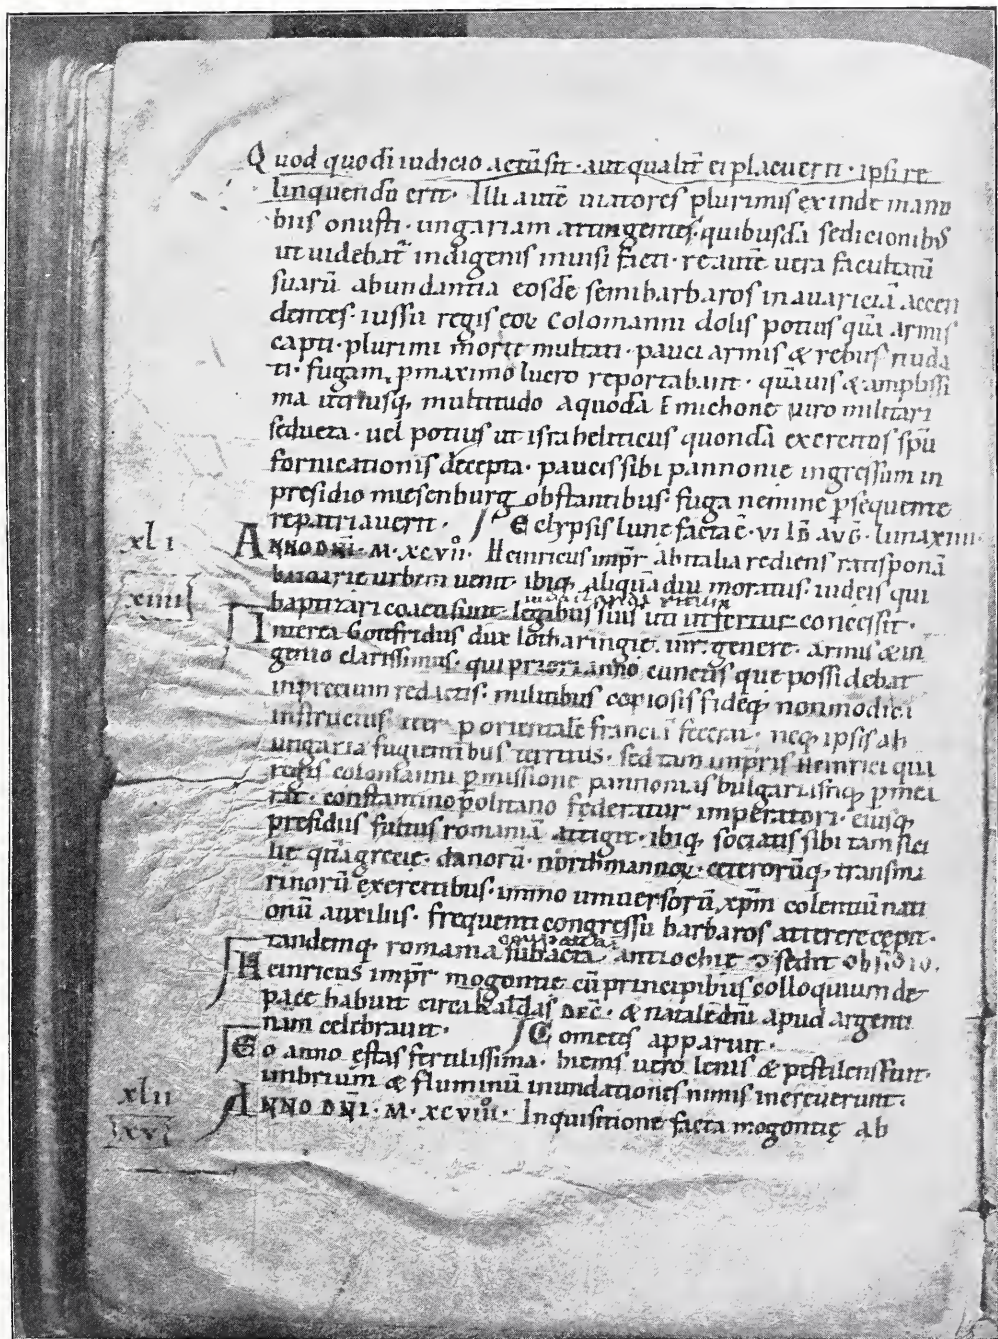 Quod quo dī iudicio actū sit · aut qualit̄ ei placuerit · ipsi re
linquendū erit · Illi autē uiatores plurimis exinde manu
biis onusti · ungariam attingentes · quibusdā sedicionib;
ut uidebat᷑ indigenis inuisi facti · re aute uera facultatū
suarū abundantia eosdē semibarbaros in auariciā accen
dentes · iussu regis eoꝝ Colomanni dolis potius quā armis
capti · plurimi morte multati · pauci armis & rebus nuda
ti · fugam p maximo lucro reportabant · quāuis & amplissi
ma utriusq; multitudo a quodā Emichone uiro militari
seducta · uel potius ut israheliticus quondā exercitus spū
fornicationis decepta · paucis sibi pannonie ingressum in
presidio miesenburg obstantibus · fuga nemine p̱sequente
repatriauerit · Eclypsis lune facta ē · VI ID AVḠ · luna XIIII ·
xlı
ANNO DNĪ · M · XCVII · Heinricus imp̄r ab italia rediens ratisponā
baioarie urbem uenit · ibiq; aliquādiu moratus · iudeis qui
xiiii
baptizari coacti sunt legibus suis uti
concessit ·
Interea Gotifridus dux lotharingie · uir genere · armis & in
genio clarissimus · qui priori anno cunctis que possidebat
in precium redactis · militibus copiosis fideq; non modici
instructus · iter p orientalē franciā fecerat · neq; ipsis ab
ungaria fugientibus territus · sed tam imp̄ris Heinrici quā
regis colomanni p̱missione pannoniis bulgariisq; p̱mei
rat · constantinopolitano federatur imperatori · eiusq;
presidiis fultus romaniā attigit · ibiq; sociatis sibi tam sici
lie quā grecie · danorū · northmannoꝝ · ceterorūq; transma
rinorū exercitibus · immo uniuersorū xp̄m colentiū nati
onū auxiliis · frequenti congressu barbaros atterere cępit ·
tandemq; romania subacta antiochie
Heinricus imp̄r mogontie cū principibus colloquium de
pace habuit circa kaƚdas DEC̄ · & natale dn̄i apud argenti
nam celebrauit · Cometes apparuit ·
Eo anno ęstas fertilissima · hiems uero lenis & pestilens fuit ·
imbriūm & fluminū inundationes nimis increuerunt ·
xlıı
ANNO DNĪ · M · XCVIII · Inquisitione facta mogontię ab
xv